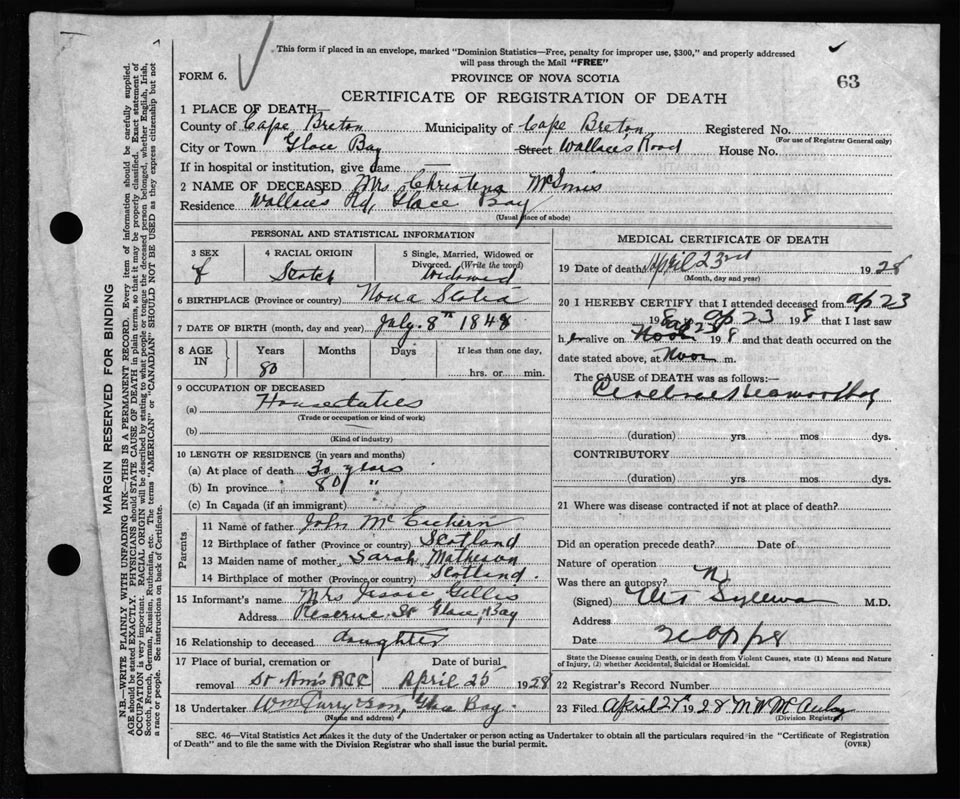 This form if placed in an envelope, marked "Dominion Statistics—Free, penalty for improper use, $300," and properly addressed
will pass through the Mail "FREE"
FORM 6.
PROVINCE OF NOVA SCOTIA
63
CERTIFICATE OF REGISTRATION OF DEATH
1 PLACE OF DEATH—
County of Cape Breton Municipality of Cape Breton Registered No.
(For use of Registrar General only)
City or Town Glace Bay Street Wallaces Road House No.
If in hospital or institution, give name
2 NAME OF DECEASED Mrs Christena McInnis
Residence Wallaces Rd, Glace Bay
(Usual place of abode)
PERSONAL AND STATISTICAL INFORMATION
3 SEX 4 RACIAL ORIGIN 5 Single, Married, Widowed or
Divorced. (Write the word)
f Scotch Widowed
6 BIRTHPLACE (Province or country) Nova Scotia
7 DATE OF BIRTH (month, day and year) July. 8th 1848
8 AGE IN Years Months Days If less than one day,
80 hrs. or min.
9 OCCUPATION OF DECEASED
(a) House duties
(Trade or occupation or kind of work)
(b)
(Kind of industry)
10 LENGTH OF RESIDENCE (in years and months)
(a) At place of death 30 years
(b) In province 80 "
(c) In Canada (if an immigrant)
Parents
11 Name of father John McEachern
12 Birthplace of father (Province or country) Scotland
13 Maiden name of mother Sarah Matheson
14 Birthplace of mother (Province or country) Scotland
15 Informant's name Mrs Jessie Gillis
Address Reserve St Glace Bay
16 Relationship to deceased daughter
17 Place of burial, cremation or Date of burial
removal St Anns RCC April 25 1928
18 Undertaker Wm Curry & Son, Glace Bay
(Name and address)
MEDICAL CERTIFICATE OF DEATH
19 Date of death April 23rd 1928
(Month, day and year)
20 I HEREBY CERTIFY that I attended deceased from ap 23
1928 ap 23 198 that I last saw
her alive on ap 23 198 and that death occurred on the
date stated above, at Noon m.
The CAUSE of DEATH was as follows:—
Cerebral Heamorrhag
(duration) yrs. mos. dys.
CONTRIBUTORY
(duration) yrs. mos. dys.
21 Where was disease contracted if not at place of death?
Did an operation precede death? Date of
Nature of operation
Was there an autopsy? No
(Signed) M.D.
Address
Date
State the Disease causing Death, or in death from Violent Causes, state (1) Means and Nature
of Injury, (2) whether Accidental, Suicidal or Homicidal.
22 Registrar's Record Number
23 Filed April 27 1928 M W McAulay
(Division Registrar)
SEC. 46—Vital Statistics Act makes it the duty of the Undertaker or person acting as Undertaker to obtain all the particulars required in the "Certificate of Registration
of Death" and to file the same with the Division Registrar who shall issue the burial permit.
(OVER)
MARGIN RESERVED FOR BINDING
N.B.—WRITE PLAINLY WITH UNFADING INK—THIS IS A PERMANENT RECORD. Every item of information should be carefully supplied.
AGE should be stated EXACTLY. PHYSICIANS should STATE CAUSE OF DEATH in plain terms, so that it may be properly classified. Exact statement of
OCCUPATION is very important. RACIAL ORIGIN will be described by stating to what people or tongue the deceased person belonged, whether English, Irish,
Scotch, French, German, Russian, Ruthenian, etc. The terms "AMERICAN" or "CANADIAN" SHOULD NOT BE USED as they express citizenship but not
a race or people. See instructions on back of Certificate.